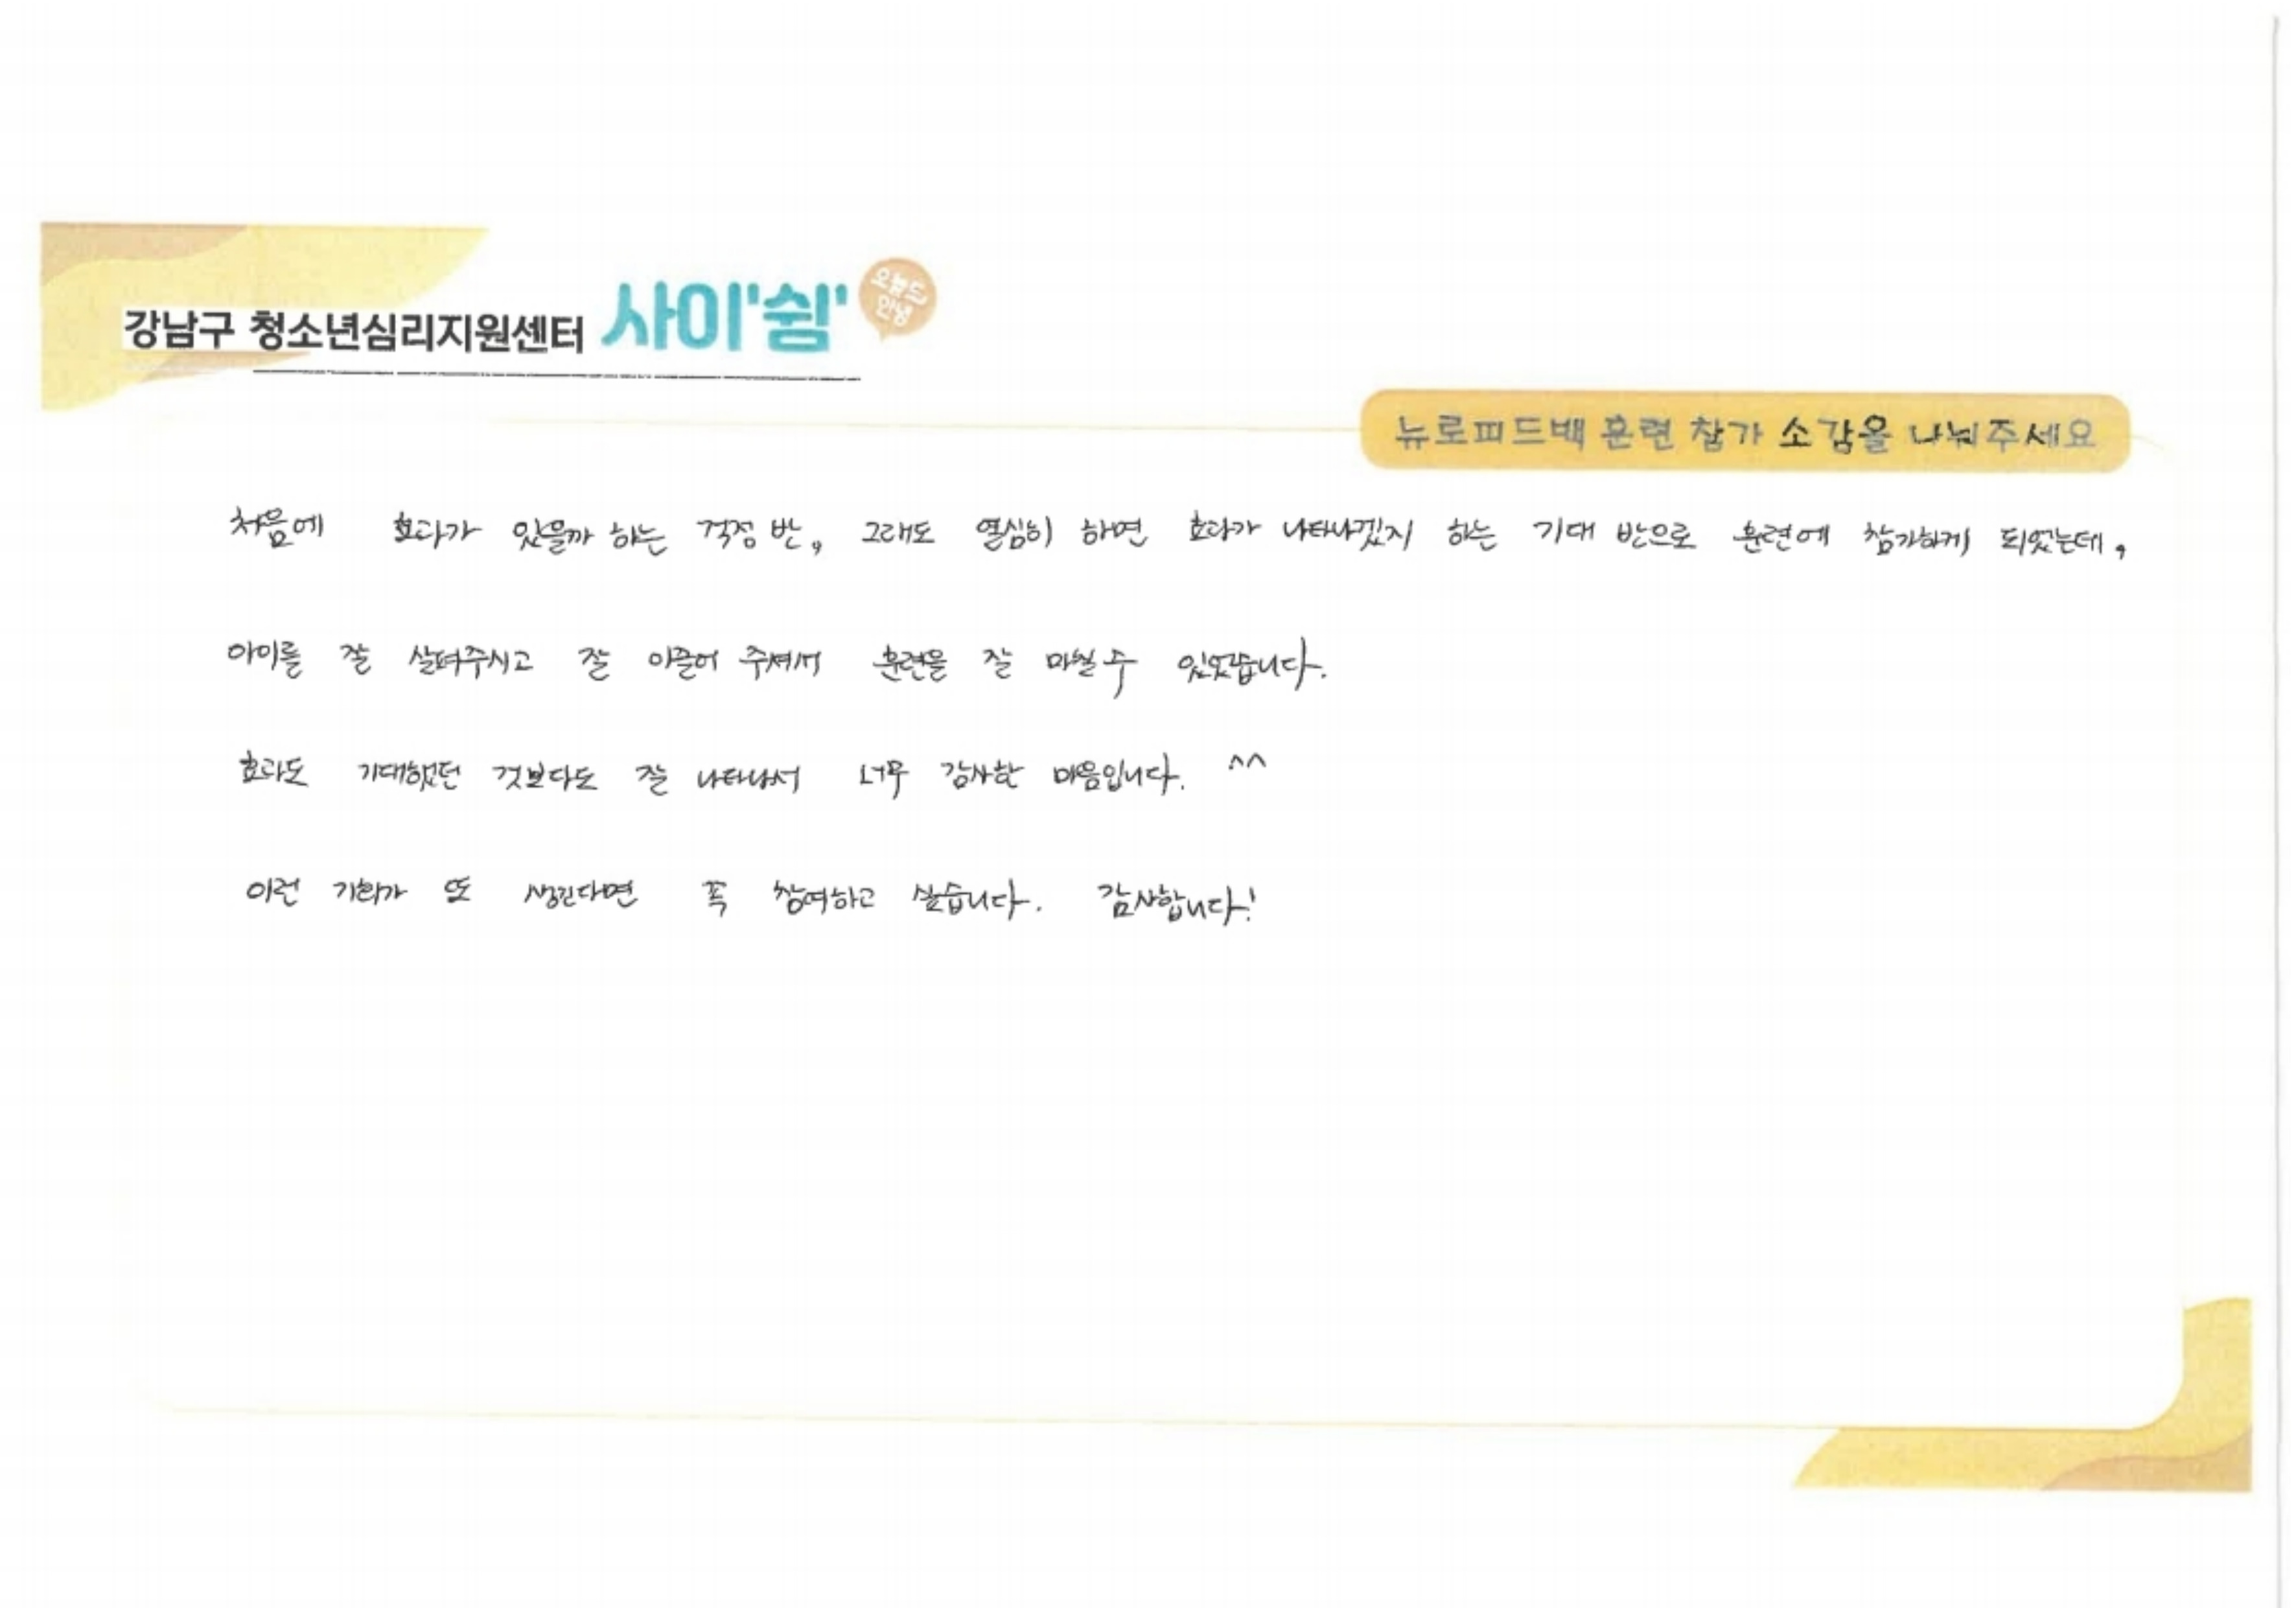 강남구 청소년심리지원센터 사이'쉼' 오늘도 안녕
뉴로피드백 훈련 참가 소감을 나눠주세요
처음에 효과가 있을까 하는 걱정 반, 그래도 열심히 하면 효과가 나타나겠지 하는 기대 반으로 훈련에 참가하게 되었는데,
아이를 잘 살펴주시고 잘 이끌어 주셔서 훈련을 잘 마칠 수 있었습니다.
효과도 기대했던 것보다도 잘 나타나서 너무 감사한 마음입니다. ^^
이런 기회가 또 생긴다면 꼭 참여하고 싶습니다. 감사합니다!